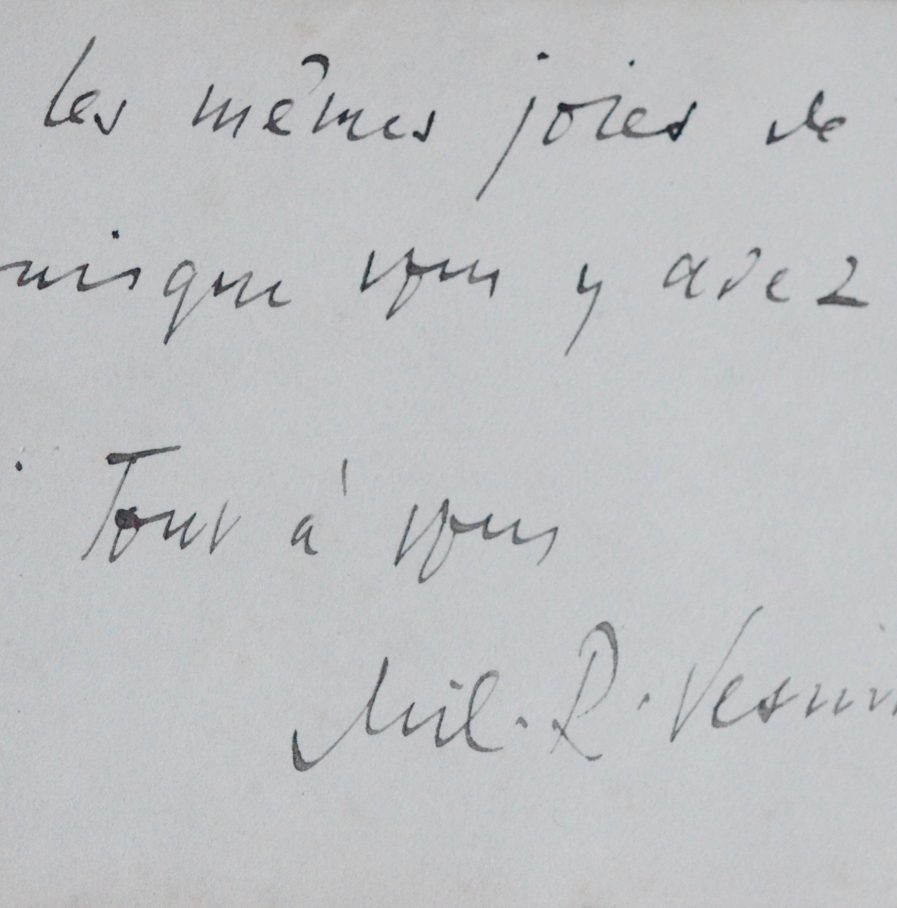 les mêmes joies de
uisque vous y avez
Tout à vous
Mil. R. Vesni